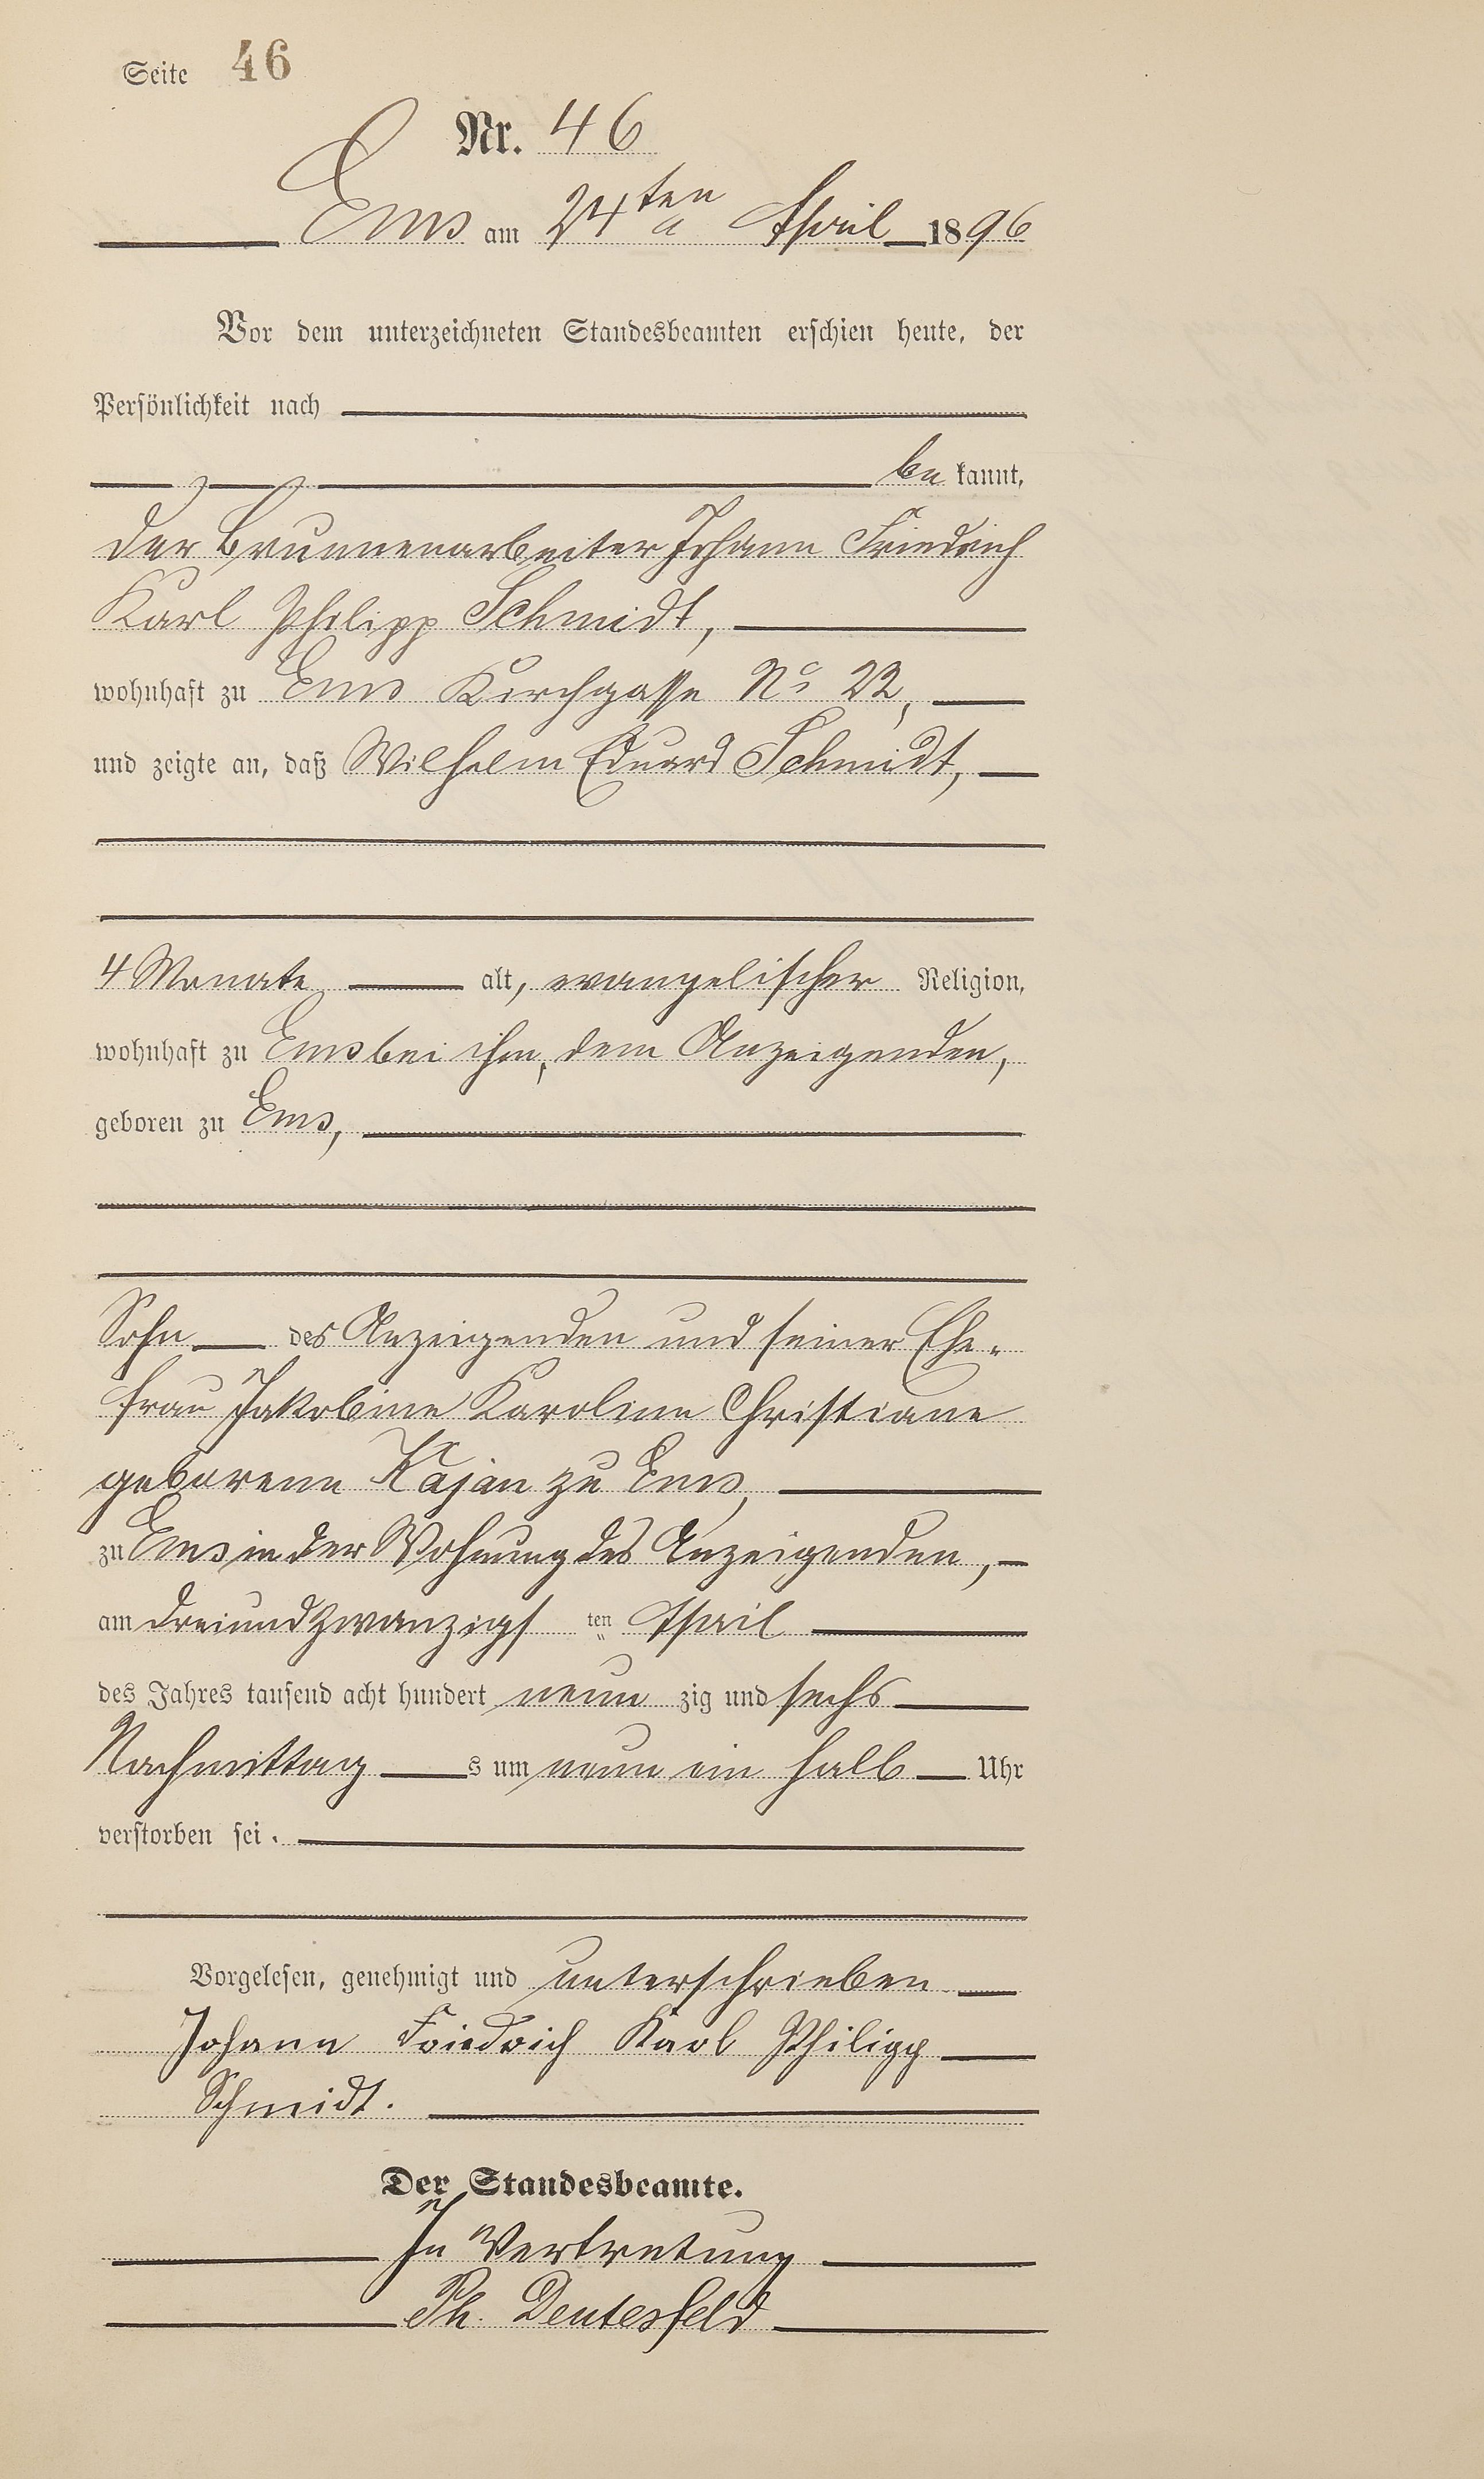 Seite 46
Nr. 46
Ems am 24ten April 1896
Vor dem unterzeichneten Standesbeamten erschien heute, der
Persönlichkeit nach
be kannt,
der Brunnenarbeiter Johann Friedrich
Karl Philipp Schmidt,
wohnhaft zu Ems Kirchgasse No 22,
und zeigte an, daß Wilhelm Eduard Schmidt,
4 Monate alt, evangelischer Religion,
wohnhaft zu Ems bei ihm, dem Anzeigenden,
geboren zu Ems,
Sohn des Anzeigenden und seiner Ehe-
frau Jakobine Karoline Christiane
geborene Kajan zu Ems,
zu Ems in der Wohnung des Anzeigenden,
am dreiundzwanzigs ten April
des Jahres tausend acht hundert neun zig und sechs
Nachmittag s um neun ein halb Uhr
verstorben sei.
Vorgelesen, genehmigt und unterschrieben
Johann Friedrich Karl Philipp
Schmidt.
Der Standesbeamte.
In Vertretung
Ph. Deutesfeld